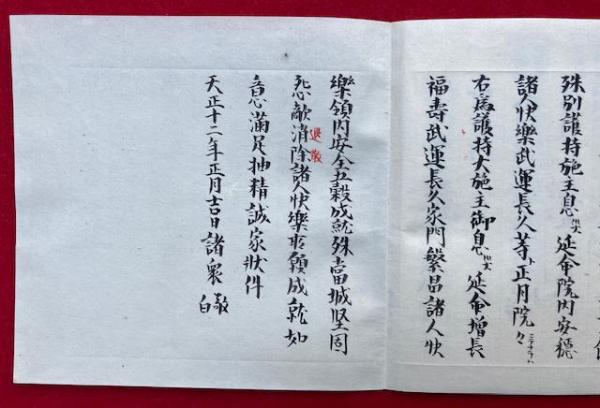 殊別護持施主息災延命院内安穏
諸人快樂武運長久等ト正月院々
右為護持大施主御息災延命増長
福寿武運長久家門繁昌諸人快
樂領内安全五穀成就殊當城堅固
怨敵消除諸人快樂求願成就如
退散
意滿足抽精誠家状件
天正十二年正月吉日諸衆敬白